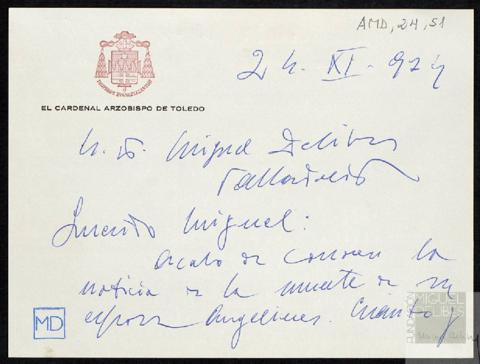 AMD, 24, 51
24. XI. 974
EL CARDENAL ARZOBISPO DE TOLEDO
Miguel Delibes
Valladolid
Querido Miguel:
Acabo de conocer la
noticia de la muerte de su
esposa Angelines. Cuanto
MD
FUNDACIÓN
MIGUEL
DELIBES